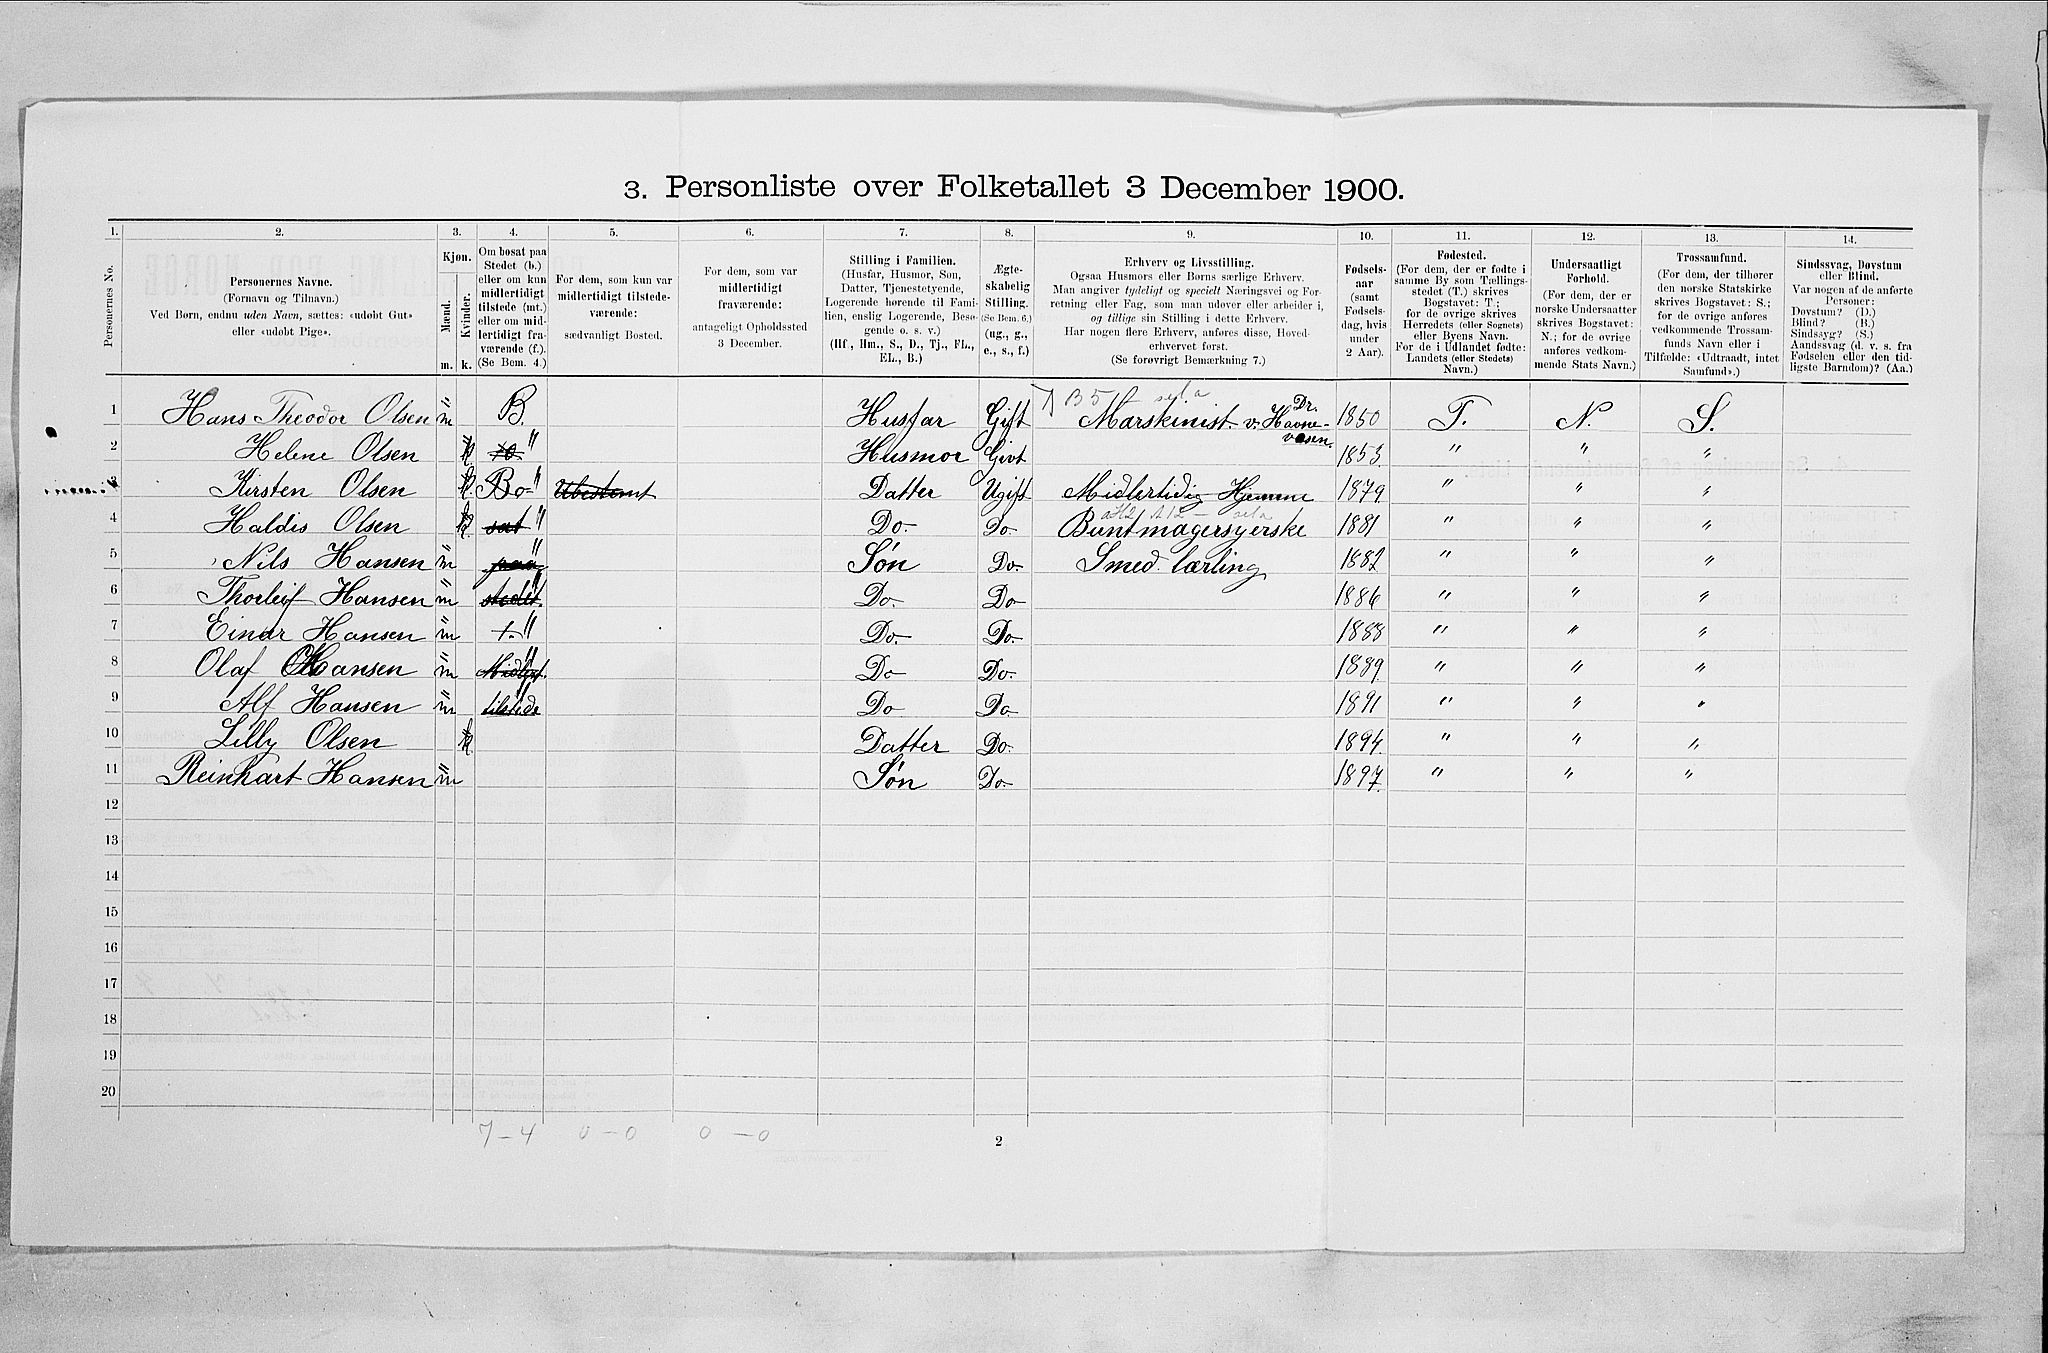 3. Personliste over Folketallet 3 December 1900.
1. 2. 3. 4. 5. 6. 7. 8. 9. 10. 11. 12. 13. 14.
Personernes No.
Personernes Navne.
(Fornavn og Tilnavn.)
Ved Børn, endnu uden Navn, sættes: «udøbt Gut»
eller «udøbt Pige».
Kjøn.
Mænd.
Kvinder.
m. k.
Om bosat paa
Stedet (b.)
eller om kun
midlertidigt
tilstede (mt.)
eller om mid-
lertidigt fra-
værende (f.).
(Se Bem. 4.)
For dem, som kun var
midlertidigt tilstede-
værende:
sædvanligt Bosted.
For dem, som var
midlertidigt
fraværende:
antageligt Opholdssted
3 December.
Stilling i Familien.
(Husfar, Husmor, Søn,
Datter, Tjenestetyende,
Logerende hørende til Fami-
lien, enslig Logerende, Besø-
gende o. s. v.)
(Hf., Hm., S., D., Tj., FL.,
EL., B.)
Ægte-
skabelig
Stilling.
(Se Bem. 6.)
(ug., g.,
e., s., f.)
Erhverv og Livsstilling.
Ogsaa Husmors eller Børns særlige Erhverv.
Man angiver tydeligt og specielt Næringsvei og For-
retning eller Fag, som man udøver eller arbeider i,
og tillige sin Stilling i dette Erhverv.
Har nogen flere Erhverv, anføres disse, Hoved-
erhvervet først.
(Se forøvrigt Bemærkning 7.)
Fødsels-
aar
(samt
Fødsels-
dag, hvis
under
2 Aar).
Fødested.
(For dem, der er fødte i
samme By som Tællings-
stedet (T.) skrives
Bogstavet: T.;
for de øvrige skrives
Herredets (eller Sognets)
eller Byens Navn.
For de i Udlandet fødte:
Landets (eller Stedets)
Navn.)
Undersaatligt
Forhold.
(For dem, der er
norske Undersaatter
skrives Bogstavet:
N.; for de øvrige
anføres vedkom-
mende Stats Navn.)
Trossamfund.
(For dem, der tilhører
den norske Statskirke
skrives Bogstavet: S.;
for de øvrige anføres
vedkommende Trossam-
funds Navn eller i
Tilfælde: «Udtraadt, intet
Samfund».)
Sindssvag, Døvstum
eller Blind.
Var nogen af de anførte
Personer:
Døvstum? (D.)
Blind? (B.)
Sindssyg? (S.)
Aandssvag (d. v. s. fra
Fødselen eller den tid-
ligste Barndom)? (Aa.)
1 Hans Theodor Olsen m B. Husfar Gift Marskinist v. Havne- Dr. 1850 T. N. S.
vesen.
2 Helene Olsen k " Husmor Givt 1853 " " "
3 Kirsten Olsen k Bo " Ubestemt Datter Ugift Midlertidig Hjemme 1879 " " "
4 Haldis Olsen k sat " Do. Do. Buntmagersyerske 1881 " " "
5 Nils Hansen m paa " Søn Do. Smed. lærling 1882 " " "
6 Thorleif Hansen m stedet " Do. Do 1886 " " "
7 Einar Hansen m " Do. Do. 1888 " " "
8 Olaf Hansen m Midlert. Do Do. 1889 " " "
9 Alf Hansen m tilstede Do Do. 1891 " " "
10 Lilly Olsen k Datter Do. 1894 " " "
11 Reinhart Hansen m Søn Do. 1897. " " "
12
13
14
15
16
17
18
19
20
7-4 0-0 0-0
2